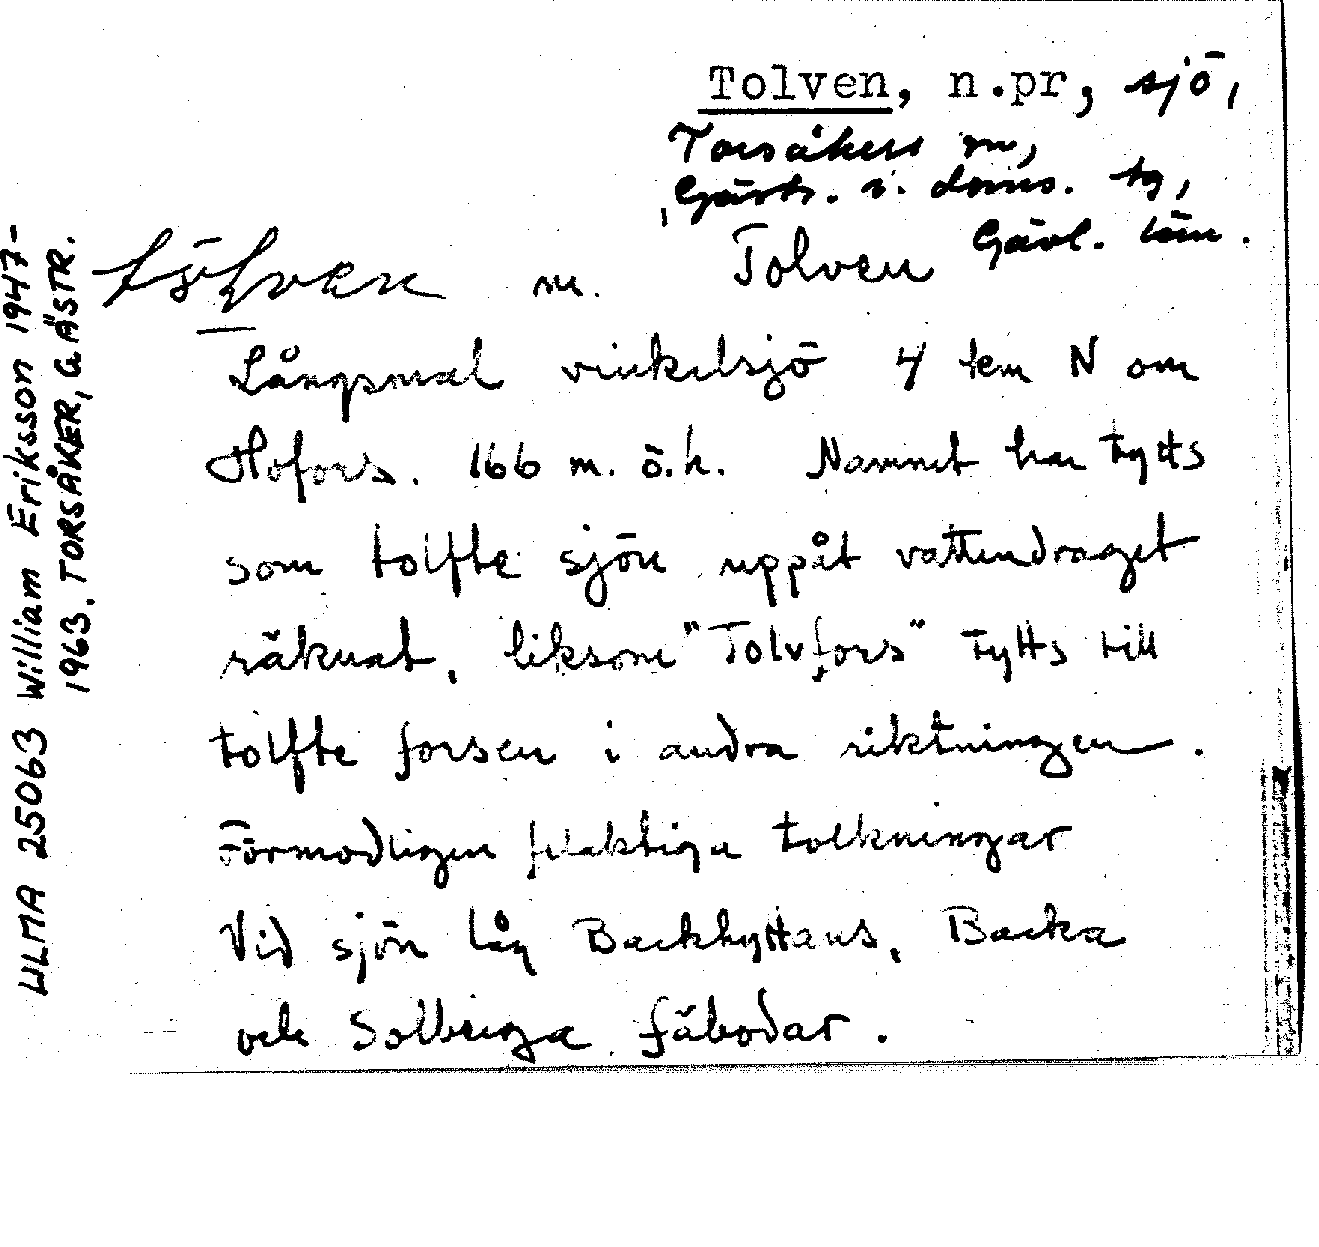 Tolven, n.pr, sjö,
Torsåkers sn,
Gästr. v. doms. tg,
Gävl. län.
tölven m. Tolven
Långsmal vinkelsjö 4 km N om
Hofors. 166 m. ö.h. Namnet har tytts
som tolfte sjön uppåt vattendraget
räknat, liksom "Tolvfors" tytts till
tolfte forsen i andra riktningen.
Förmodligen felaktiga tolkningar
Vid sjön låg Backhyttans, Backa
och Solberga fäbodar.
ULMA 25063 William Eriksson 1947-
1963. TORSÅKER, GÄSTR.